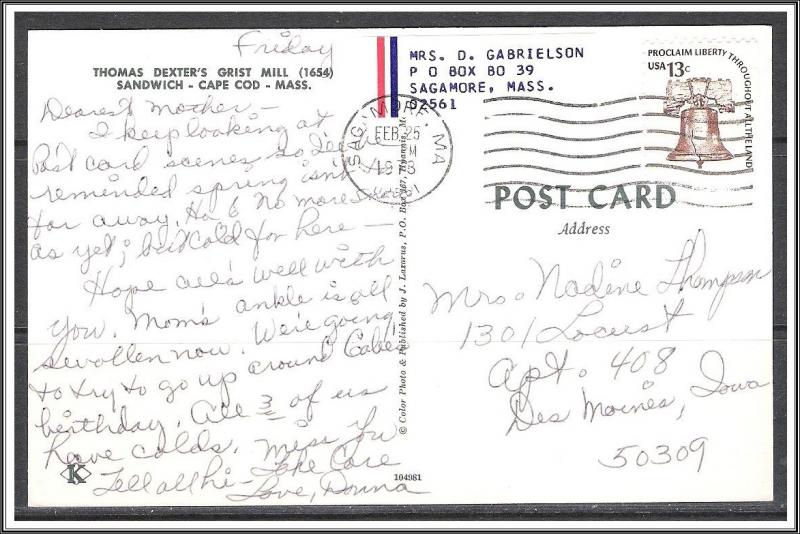 Friday
THOMAS DEXTER'S GRIST MILL (1654)
SANDWICH - CAPE COD - MASS.
Dearest Mother -
I keep looking at
Post card scenes, so I'm
reminded spring isn't
far away. No more
as yet; but cold for here -
Hope all's well with
you. Mom's ankle is all
swollen now. We're going
to try to go up around Gabe's
birthday. All 3 of us
have colds. Miss You
Tell all hi - Take Care
Love, Donna
K
MRS. D. GABRIELSON
P O BOX BO 39
SAGAMORE, MASS.
02561
SAGAMORE, MA
FEB 25
PROCLAIM LIBERTY THROUGHOUT ALL THE LAND
USA 13c
POST CARD
Address
Mrs. Nadine Thompson
1301 Locust
Apt. 408
Des Moines, Iowa
50309
© Color Photo & Published by J. Lazarus, P.O. Box 367, Hyannis, M
104981